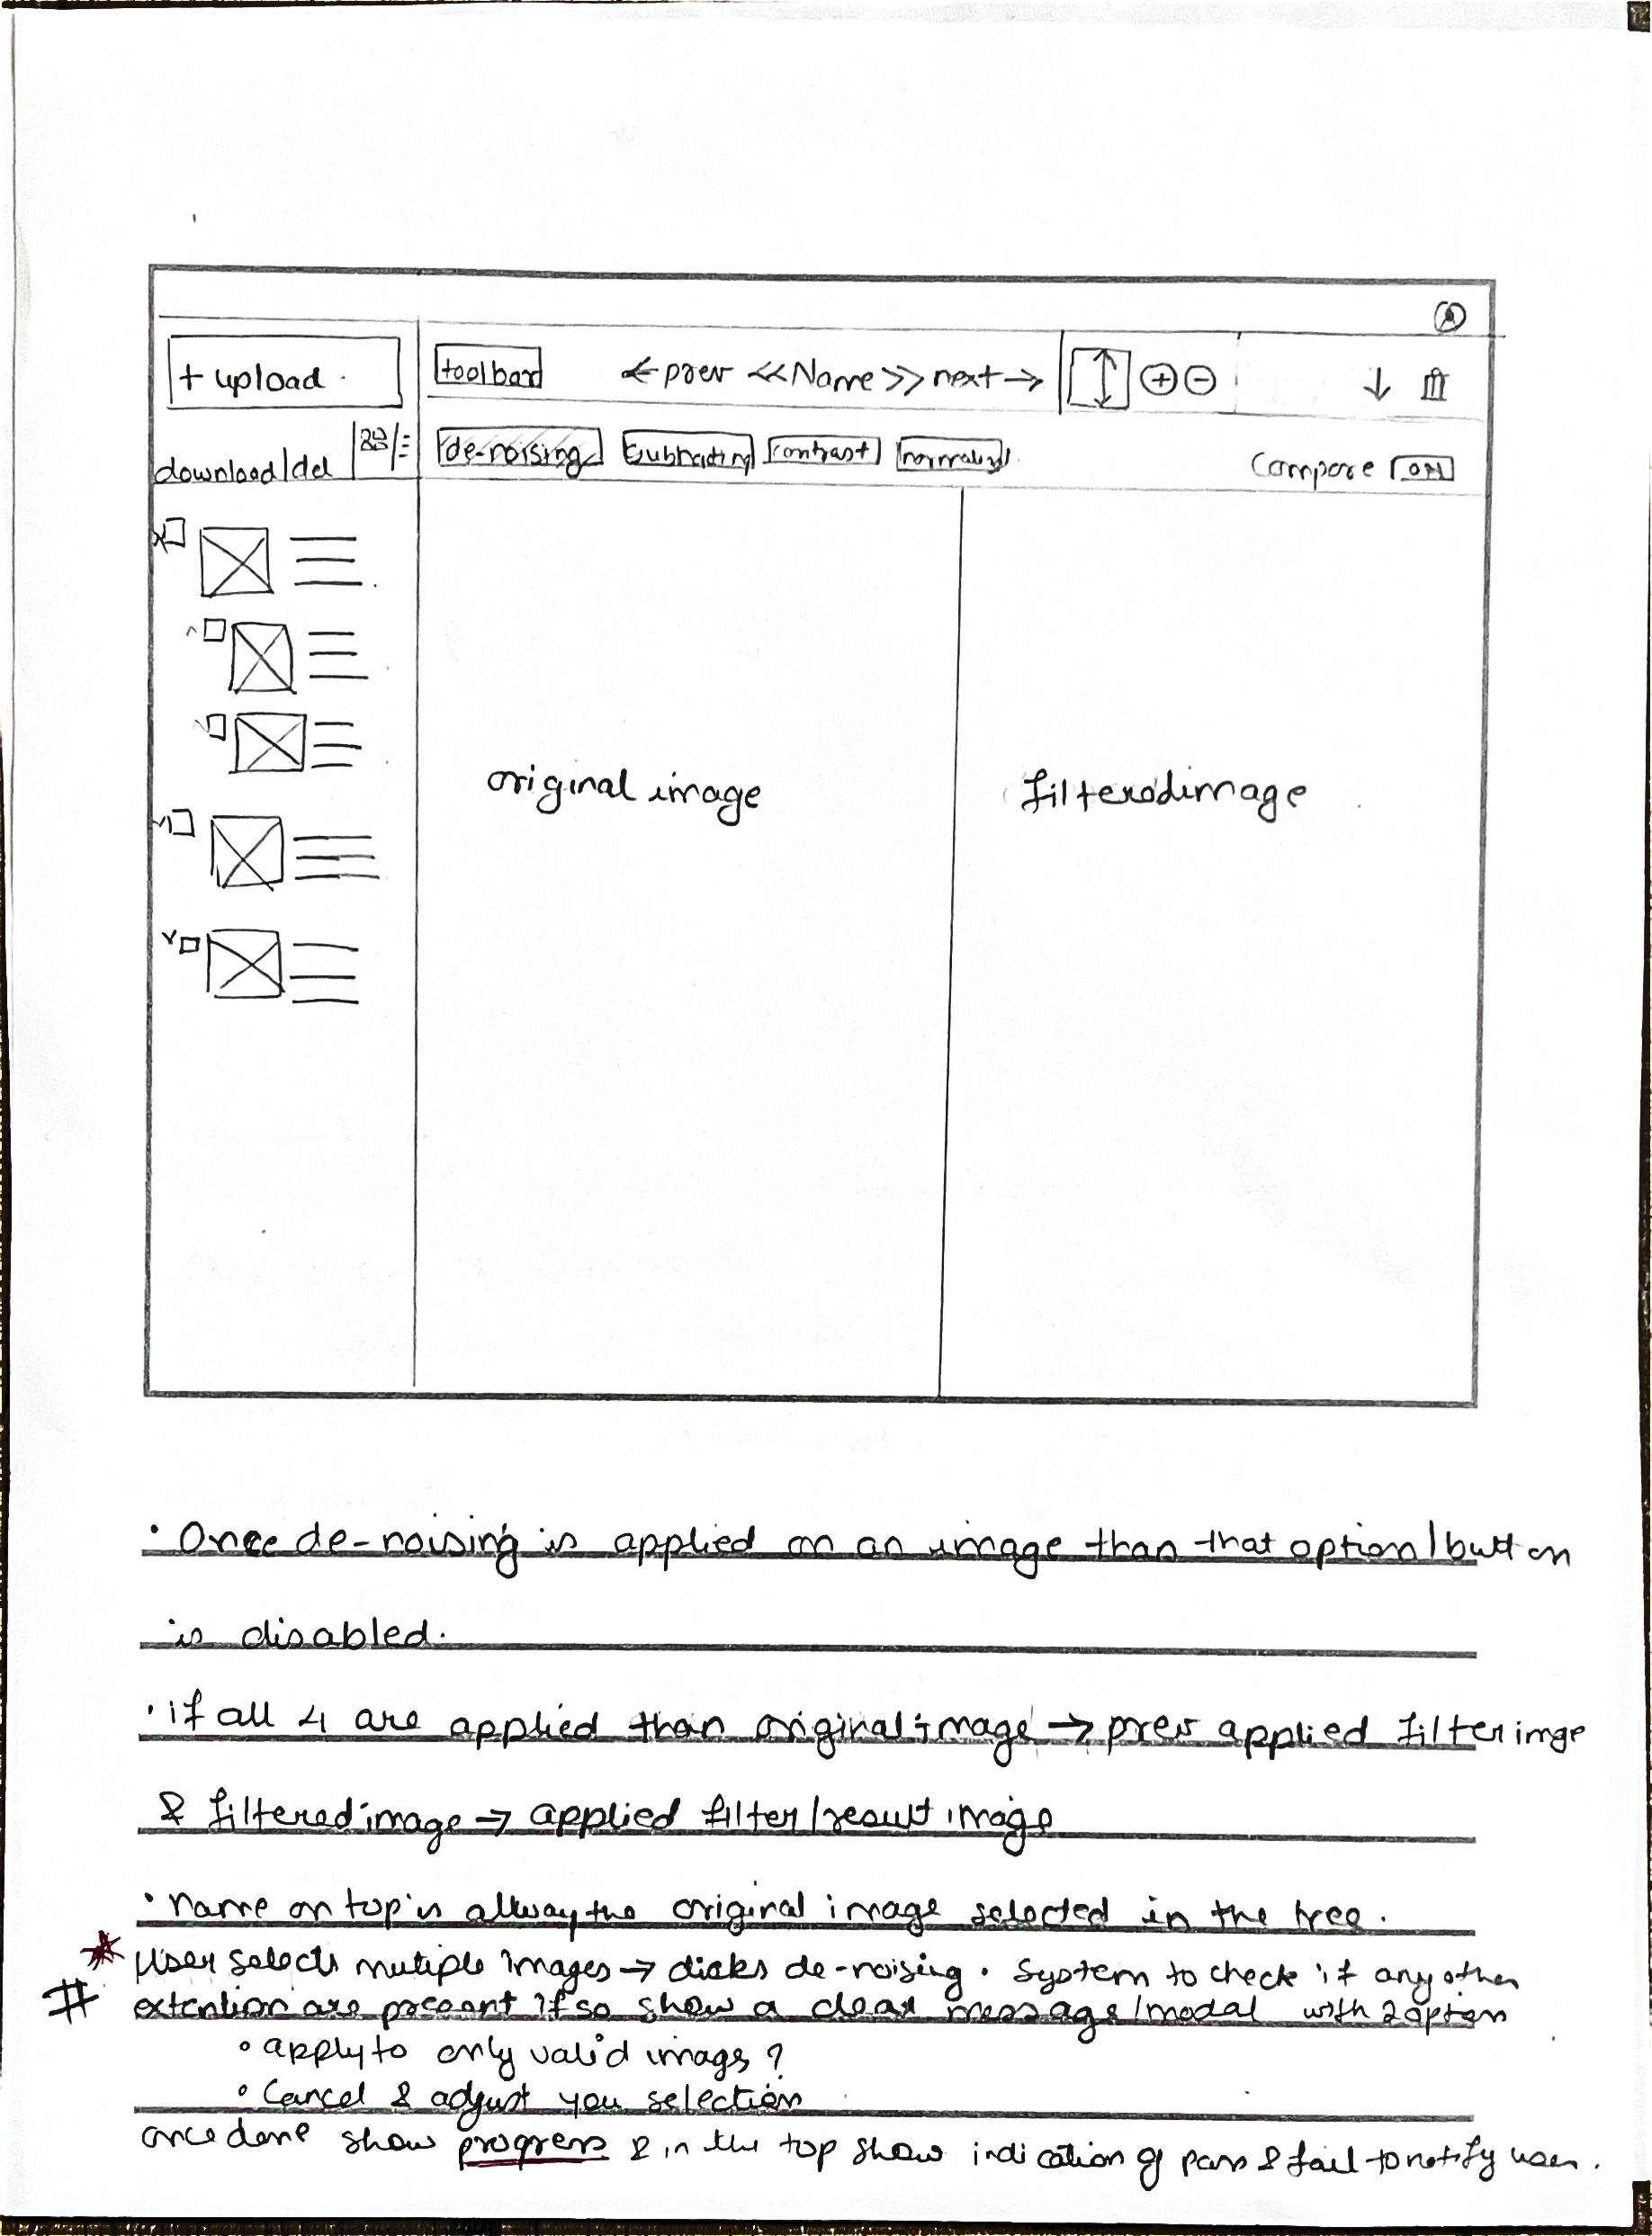 + upload
toolbar
← prev <<Name>> next →
download/del
de-noising
Subtrating
contrast
normalize
Compare ON
original image
filteredimage
• Once de-noising is applied on an image than that option/button
is disabled.
• if all 4 are applied than original image → prev applied filter imge
& filtered image → applied filter/result image
• name on top is allway the original image selected in the tree.
* User selects mutiple images → clicks de-noising. System to check if any other
# extention are present if so show a clear message/modal with 2 option
• apply to only valid imags?
• Cancel & adjust you selection
once done show progress & in the top show indication of pass & fail to notify user.